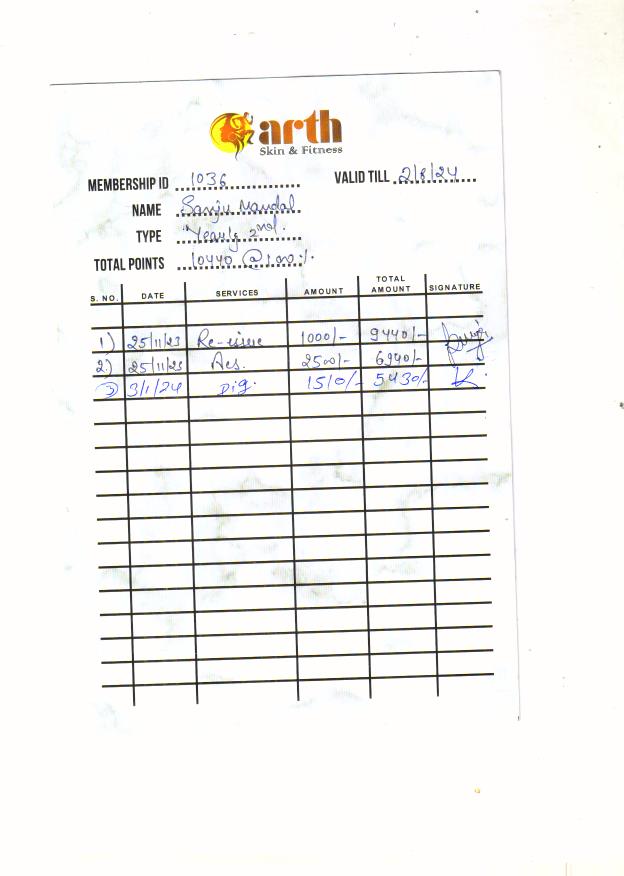 arth
Skin & Fitness
MEMBERSHIP ID 1036 VALID TILL 2/8/24
NAME Sanju Mandal
TYPE Yearly 2nd.
TOTAL POINTS 10440 @100%.
S. NO. DATE SERVICES AMOUNT TOTAL AMOUNT SIGNATURE
1) 25/11/23 Re-issue 1000/- 9440/-
2) 25/11/23 Aes. 2500/- 6940/-
3 3/1/24 Dig. 1510/- 5430/-